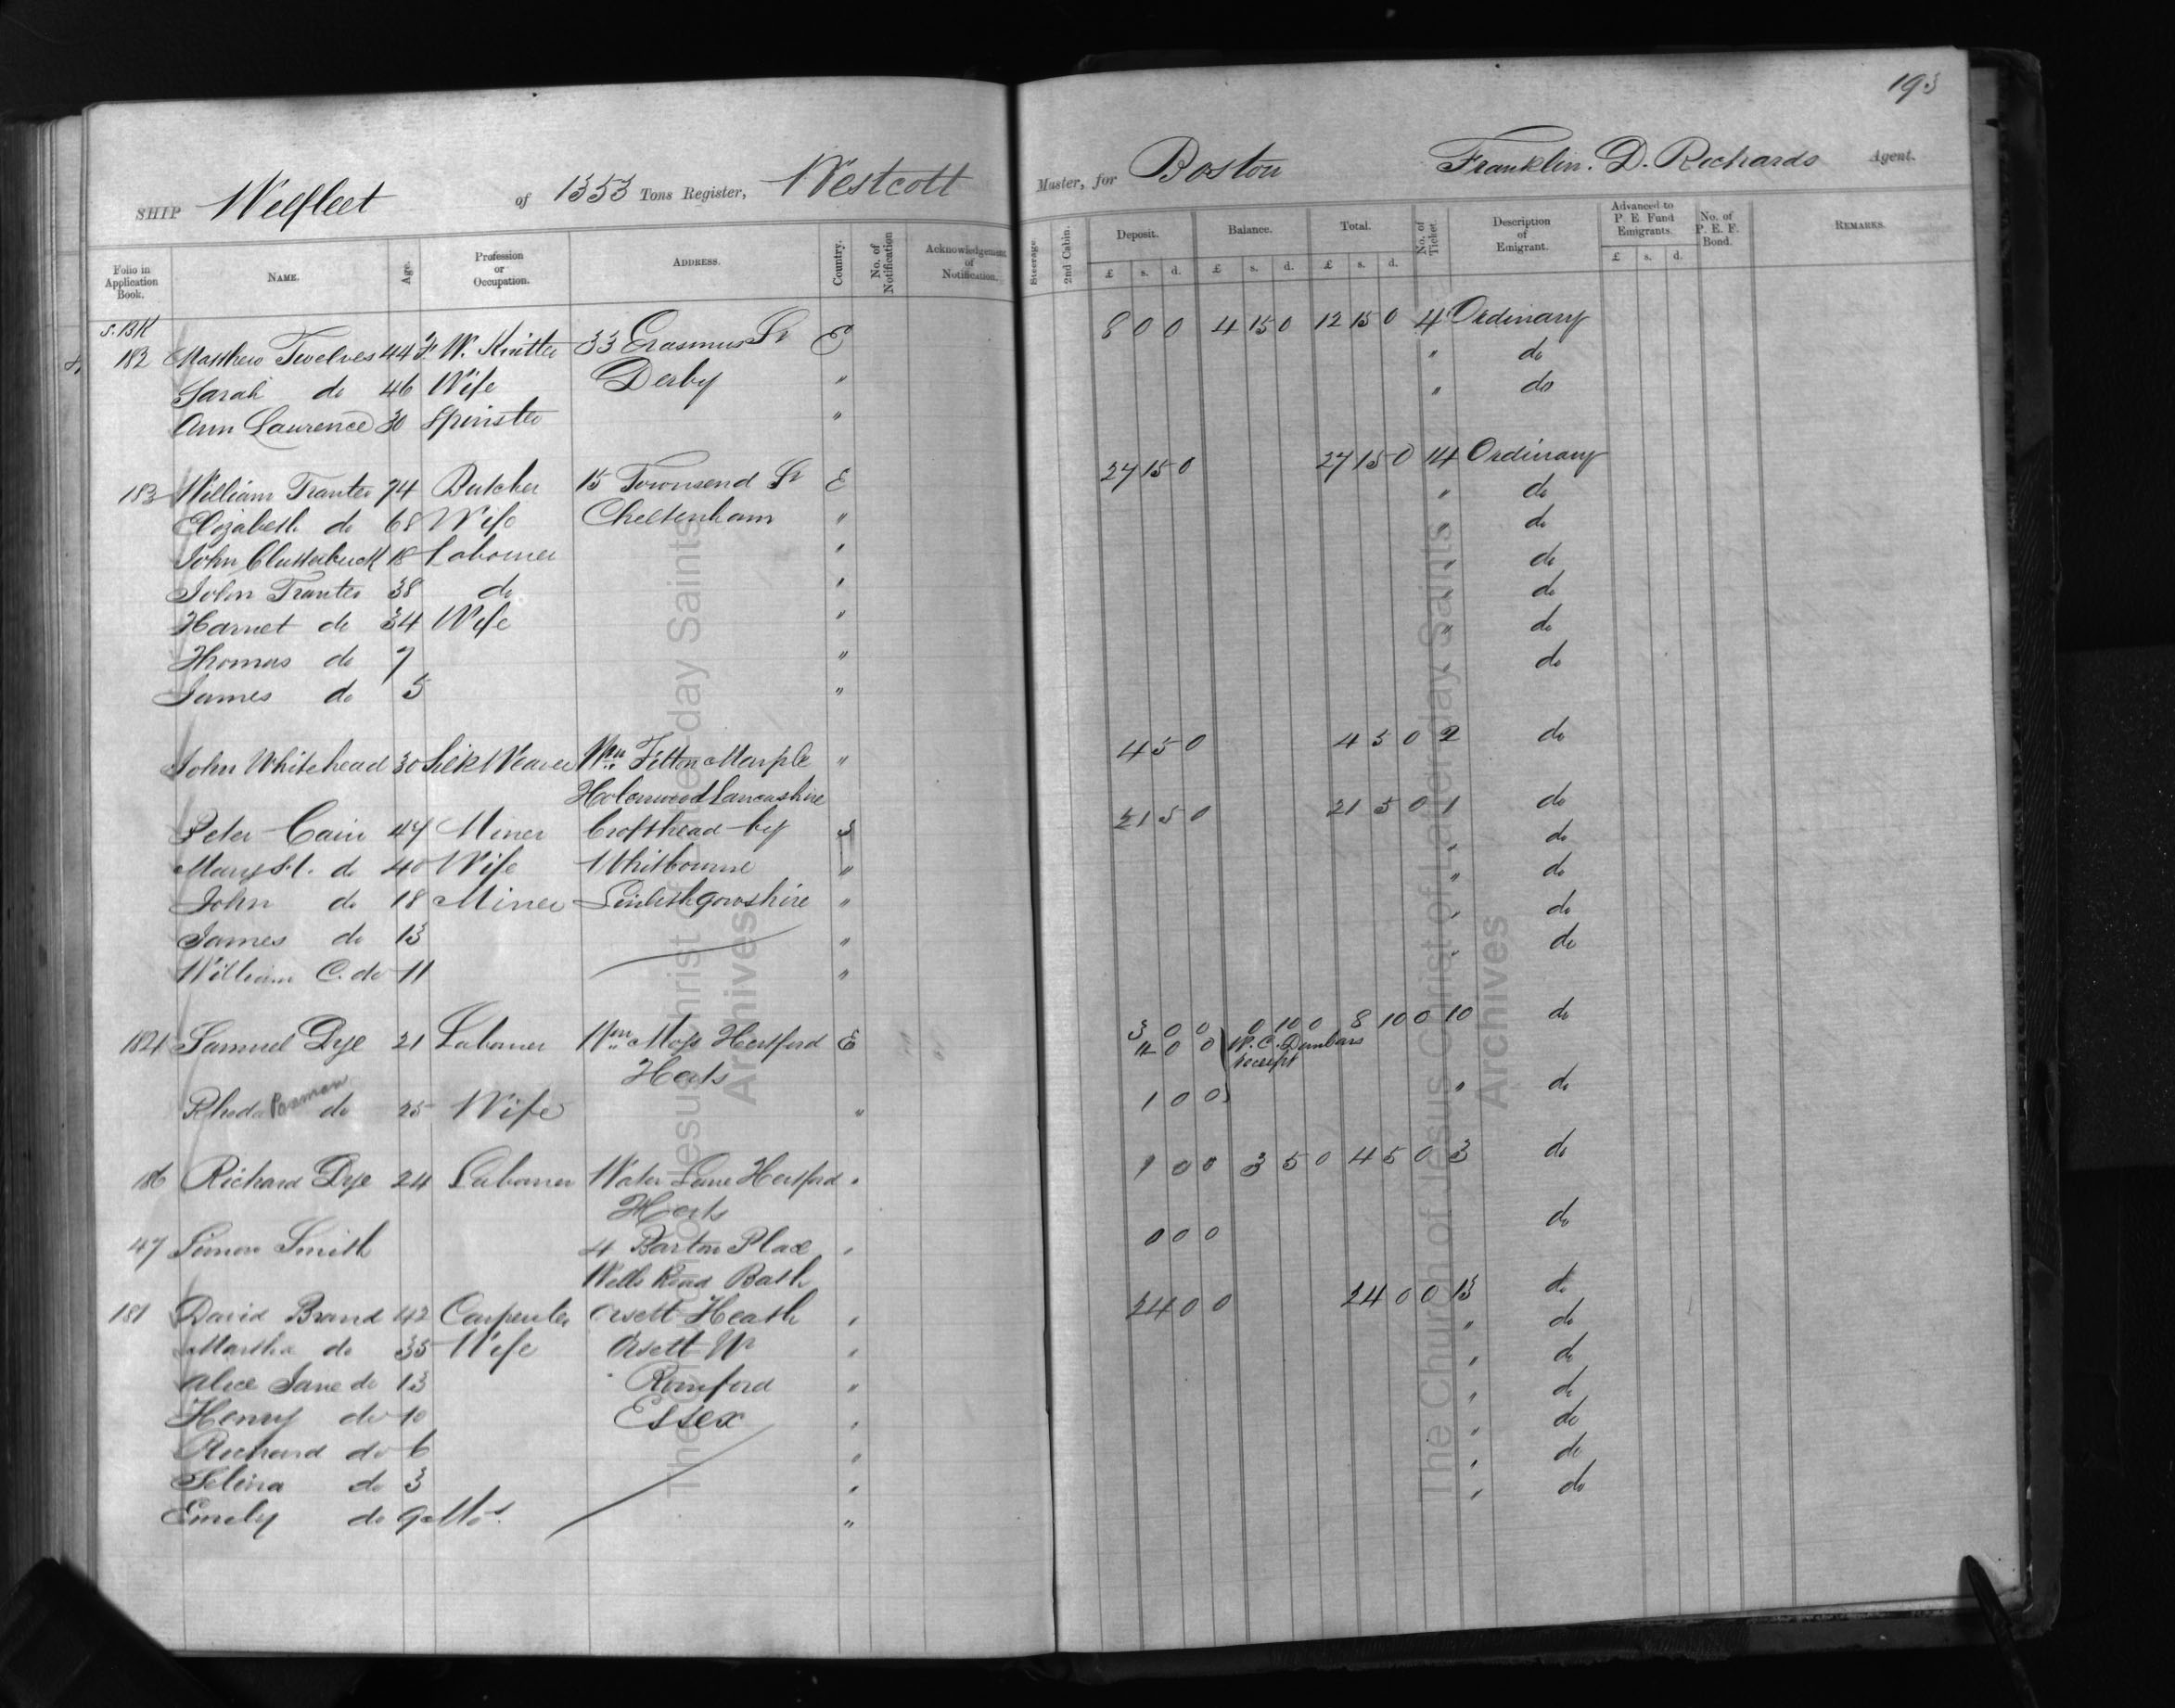 193
SHIP Wellfleet of 1353 Tons Register, Westcott Master, for Boston Franklin. D. Richards Agent.
Folio in Application Book. NAME. Age. Profession or Occupation. ADDRESS. Country. No. of Notification Acknowledgement of Notification. Steerage 2nd Cabin. Deposit. Balance. Total. No. of Ticket. Description of Emigrant. Advanced to P. E. Fund Emigrants. No. of P. E. F. Bond. REMARKS.
£ s. d. £ s. d. £ s. d. £ s. d.
S. BK
182 Matthew Twelves 44 F. W. Knitter 33 Erasmus St E 8 0 0 4 15 0 12 15 0 4 Ordinary
Sarah do 46 Wife Derby " " do
Ann Laurence 30 Spinster " " do
183 William Tranter 74 Butcher 15 Townsend St E 27 15 0 27 15 0 14 Ordinary
Elizabeth do 68 Wife Cheltenham " " do
John Clutterbuck 18 Labourer " " do
John Tranter 38 do " " do
Harriet do 34 Wife " " do
Thomas do 7 " " do
James do 5 " do
John Whitehead 30 Silk Weaver Wm Fitton Marple " 4 5 0 4 5 0 2 do
Lancashire
Peter Cain 47 Miner Crofthead by S 21 5 0 21 5 0 1 do
Mary do 40 Wife Whitbourne " " do
John do 18 Miner Linlithgowshire " " do
James do 13 " " do
William C. do 11 " " do
184 Samuel Dye 21 Labourer Wm Moss Hertford E 3 0 0 0 10 0 8 10 0 10 do
Herts 4 0 0 W. C. Dunbars receipt
Rhoda Paxman do 25 Wife " 1 0 0 " do
186 Richard Dye 24 Labourer Water Lane Hertford " 1 0 0 3 5 0 4 5 0 3 do
Herts
47 Simon Smith 4 Barton Place " 0 0 0 do
Wells Road Bath
181 David Brand 42 Carpenter Orsett Heath " 24 0 0 24 0 0 13 do
Martha do 35 Wife Orsett Nr " " do
Alice Jane do 13 Romford " " do
Henry do 10 Essex " " do
Richard do 6 " " do
Selina do 3 " " do
Emily do 9 Mos. " " do
The Church of Jesus Christ of Latter-day Saints
Archives
The Church of Jesus Christ of Latter-day Saints
Archives